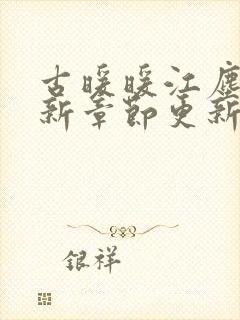 古暖暖江尘
新章节更新
银祥